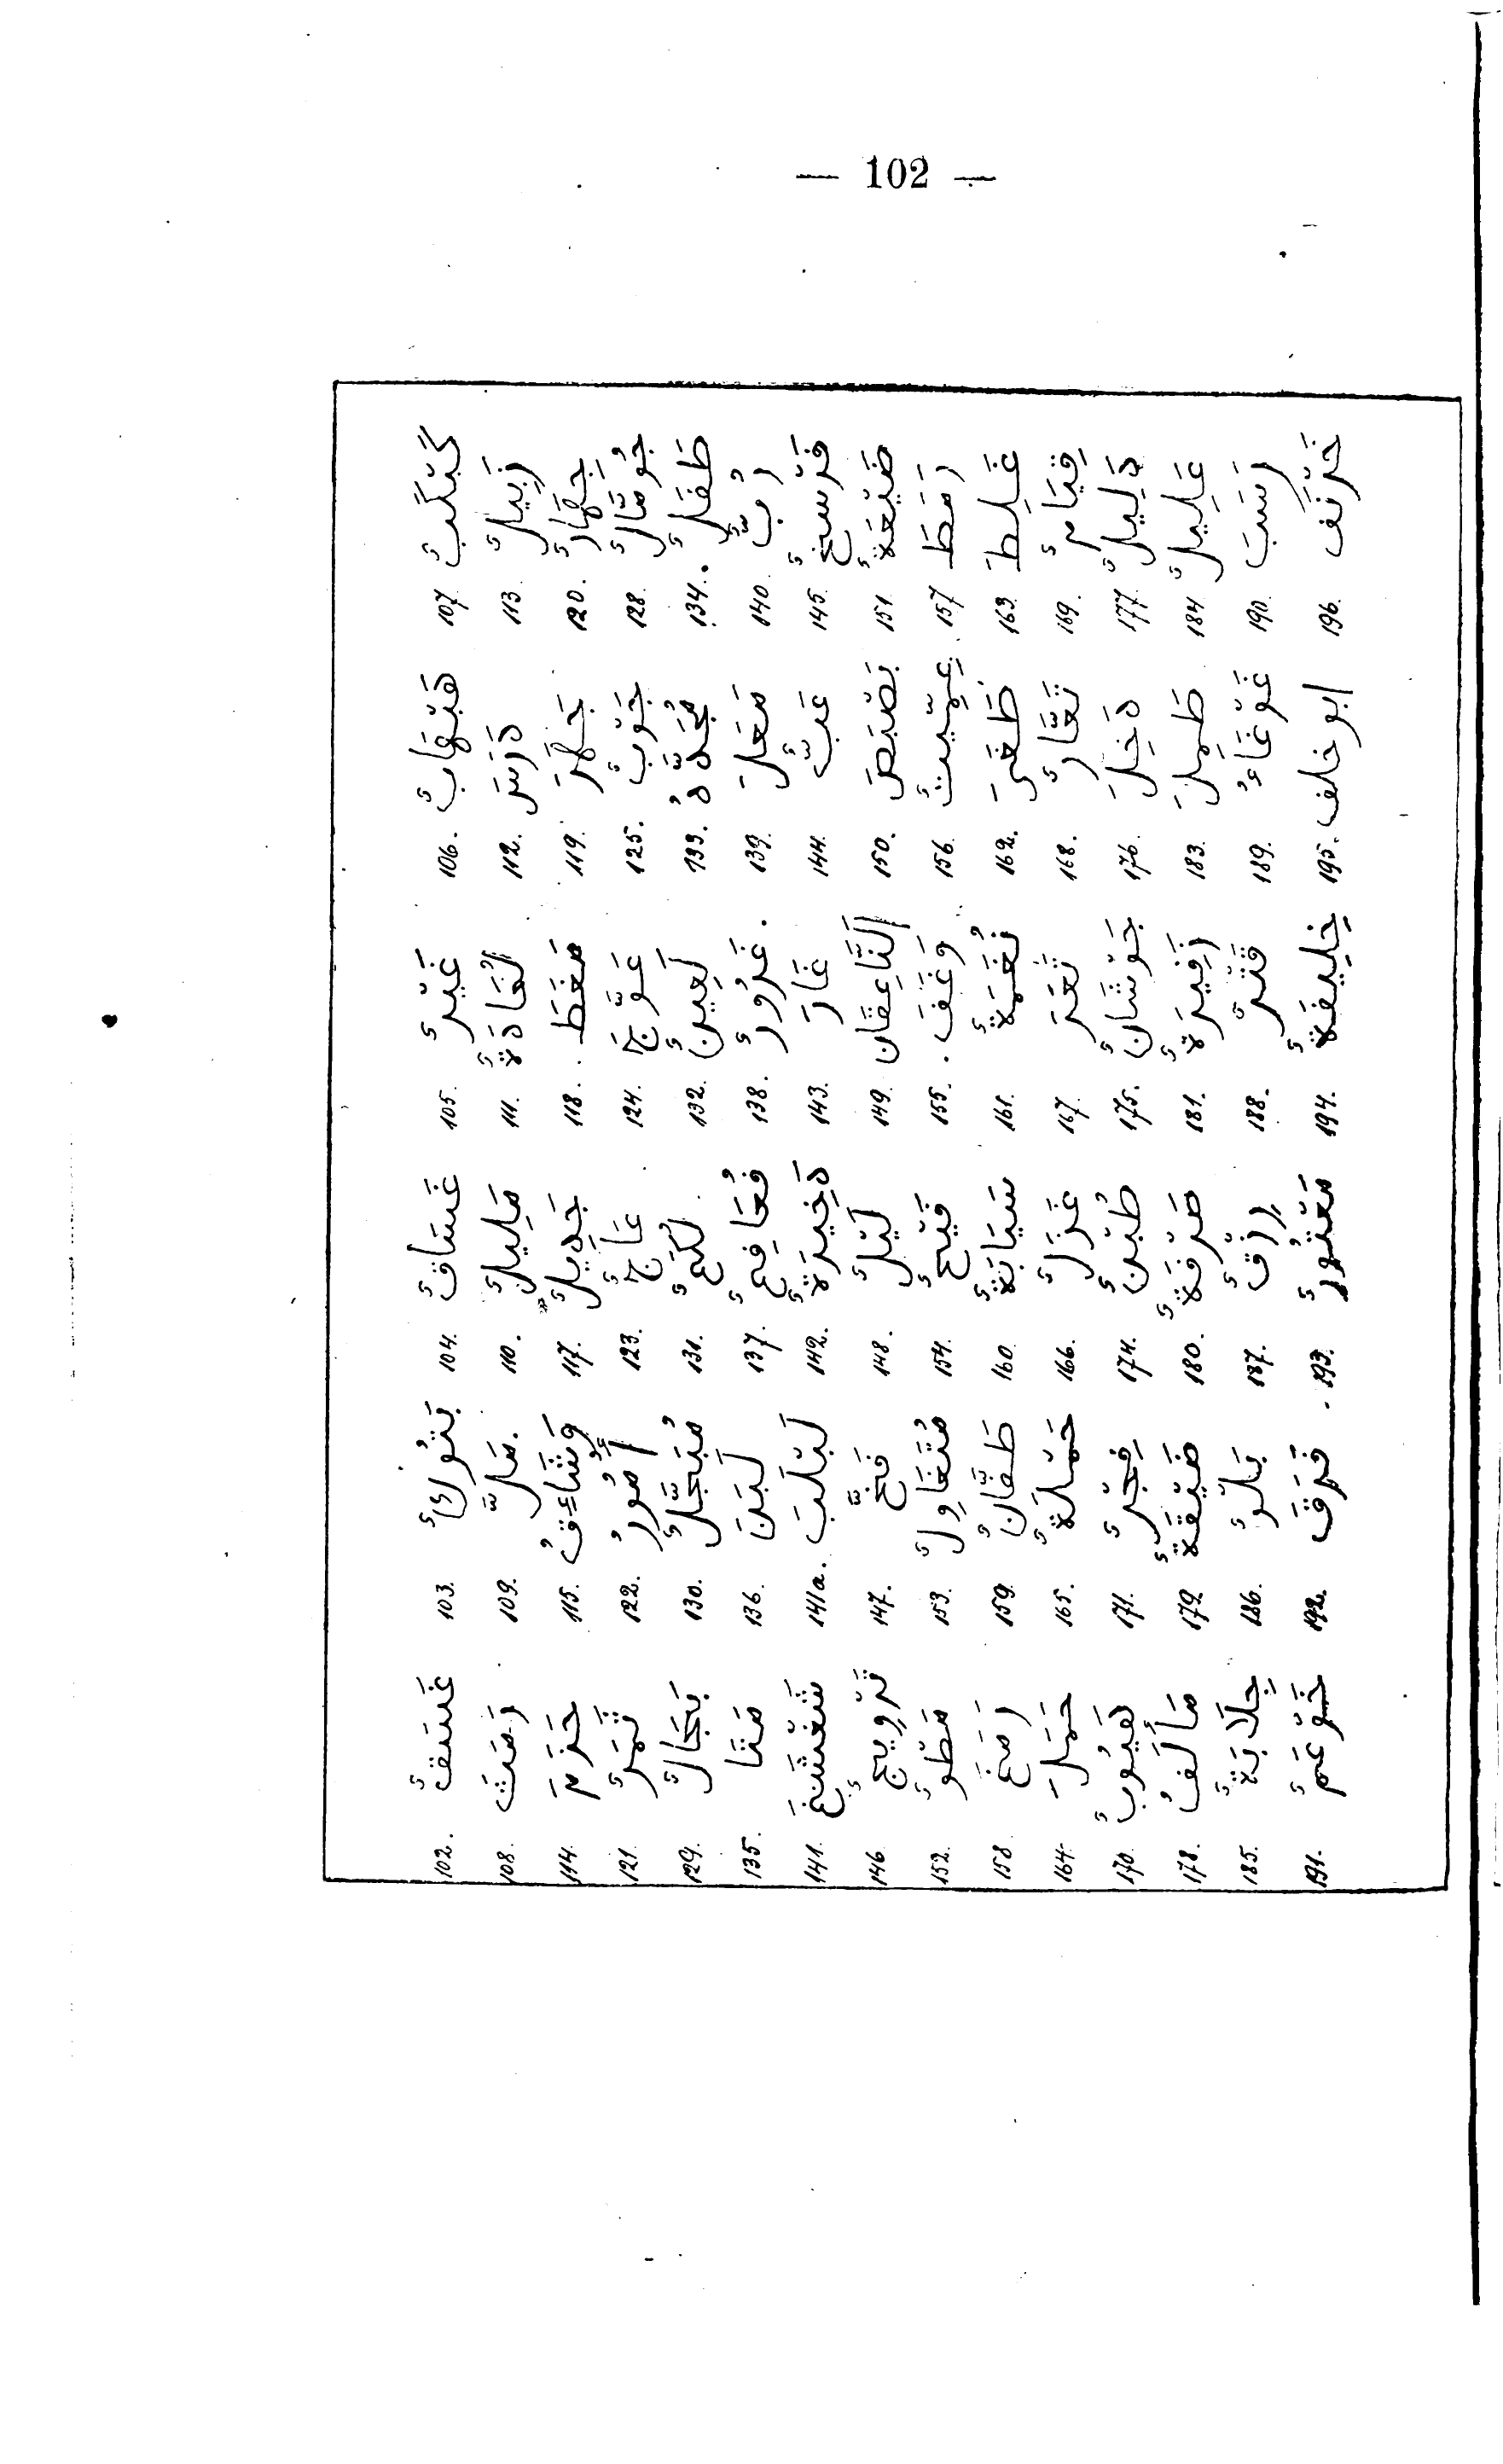 — 102 —
102. غَسَقٌ 103. 104. غَسَاقٌ 105. غَيْرٌ 106. هَبْهَابٌ 107. كَبْكَبٌ
108. رَمَثَ 109. مَلَّ 110. مَلِيلٌ 111. 112. دَرَسَ 113. زَبِيلٌ
114. حَزَمَ 115. 117. جَدِيلٌ 118. مَغَطَ 119. جَهَرَ 120. جِهَارٌ
121. ثَمَرٌ 122. 123. عَاجٌ 124. عَوَّجَ 125. جَوْبٌ 128.
129. بَجَالٌ 130. مُبَجَّلٌ 131. لُكَعٌ 132. لَعِينٌ 133. 134. طَفَلٌ
135. مَتَا 136. لَبَنَ 137. 138. غَرُورٌ 139. مَعَلَ 140. رُبٌّ
141. شَغْشَغَ 141a. لَبْلَبَ 142. ذَخِيرَةٌ 143. غَارَ 144. عَبٌّ 145. فَرْسَخٌ
146. تَرْوِيجٌ 147. فَخَّ 148. لَيْلٌ 149. 150. بَصْبَصَ 151. ضَيْعَةٌ
152. مَطْوٌ 153. 154. فَيْحٌ 155. وَغَفَ 156. عِمِّيتٌ 157. رَمَطَ
158. رَمَغَ 159. طَفَّانٌ 160. سَيَابَةٌ 161. نُغَمَةٌ 162. طَغَى 163. غَلِطَ
164. حَمَلَ 165. حَمْلَةٌ 166. غَزَلٌ 167. ثَغَرَ 168. تَغَّارٌ 169. قِيَامٌ
170. لَعِيُوبٌ 171. فِجْرٌ 174. طُبْنٌ 175. جَوْشَانٌ 176. دَخِلَ 177. دَلِيلٌ
178. مَأْلَفٌ 179. ضَيْقَةٌ 180. صَرْفَةٌ 181. زَفِيرَةٌ 183. طَمِلَ 184. عَلِيلٌ
185. جِلَابَةٌ 186. بَلْوٌ 187. رِزْقٌ 188. قَتْرٌ 189. غَوْغَاءُ 190. رَسَبَ
191. خَوْعَمٌ 192. فَرَقَ 193. مَعْثُورٌ 194. خَلِيفَةٌ 195. ابو خلف 196. خَرْنَفَ